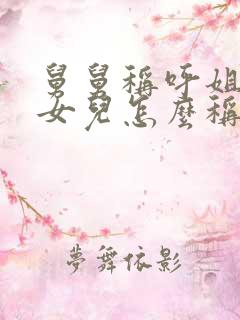 舅舅稱呼姐
女兒怎麼稱
夢舞依影